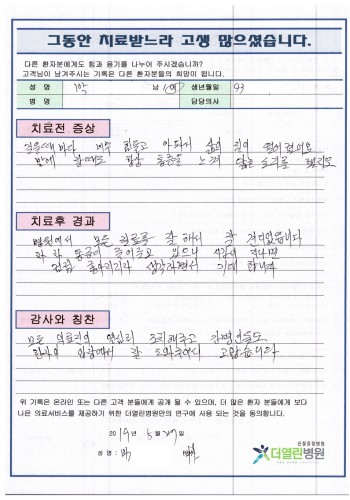 그동안 치료받느라 고생 많으셨습니다.
다른 환자분에게도 힘과 용기를 나누어 주시겠습니까?
고객님이 남겨주시는 기록은 다른 환자분들의 희망이 됩니다.
성 명 박 남 여 생년월일 93
병 명 담당의사
치료전 증상
걸을때마다 너무 힘들고 아파서 삶의 질이 떨어졌어요
밤에 잘때도 항상 통증을 느껴
치료후 경과
병원에서 모든 치료를 잘 해서 잘 견디었습니다
차차 통증이 줄어들고 있으니 시간이 지나면
점점 좋아지리라 생각하면서 기대 합니다
감사와 칭찬
모든 의료진이 열심히 조치해주고 간병인들도
환자의 입장에서 잘 도와주어서 고맙습니다
위 기록은 온라인 또는 다른 고객 분들에게 공개 될 수 있으며, 더 많은 환자 분들에게 보다
나은 의료서비스를 제공하기 위한 더열린병원만의 연구에 사용 되는 것을 동의합니다.
2019년 5월 29일
성명 : 박
관절중점병원
더열린병원